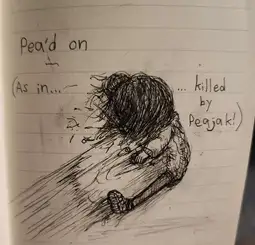 Pea'd on
(As in...
... killed
by
Peajak!)